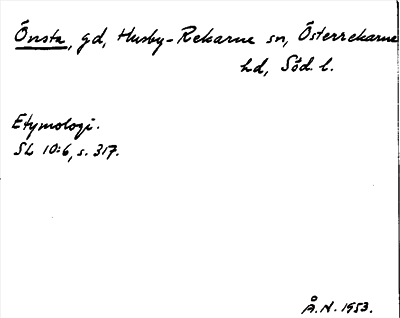 Önsta, gd, Husby-Rekarne sn, Österrekarne
hd, Söd. l.
Etymologi.
SL 10:6, s. 317.
Å.N. 1953.